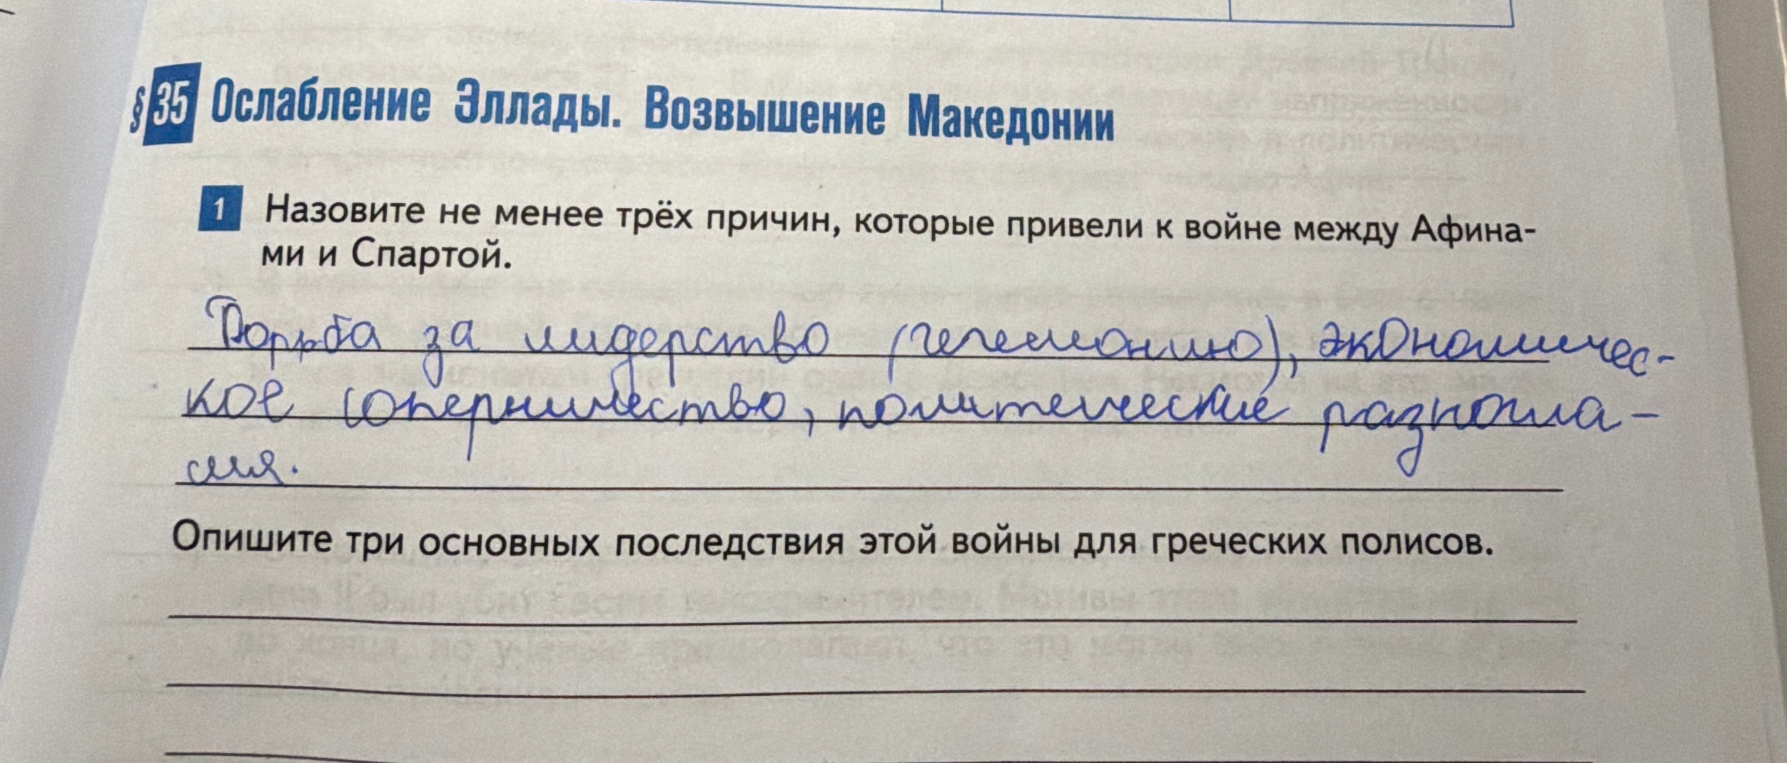 §35 Ослабление Эллады. Возвышение Македонии
1 Назовите не менее трёх причин, которые привели к войне между Афина-
ми и Спартой.
Борьба за лидерство (гегемонию), экономичес-
кое соперничество, политические разногла-
сия.
Опишите три основных последствия этой войны для греческих полисов.